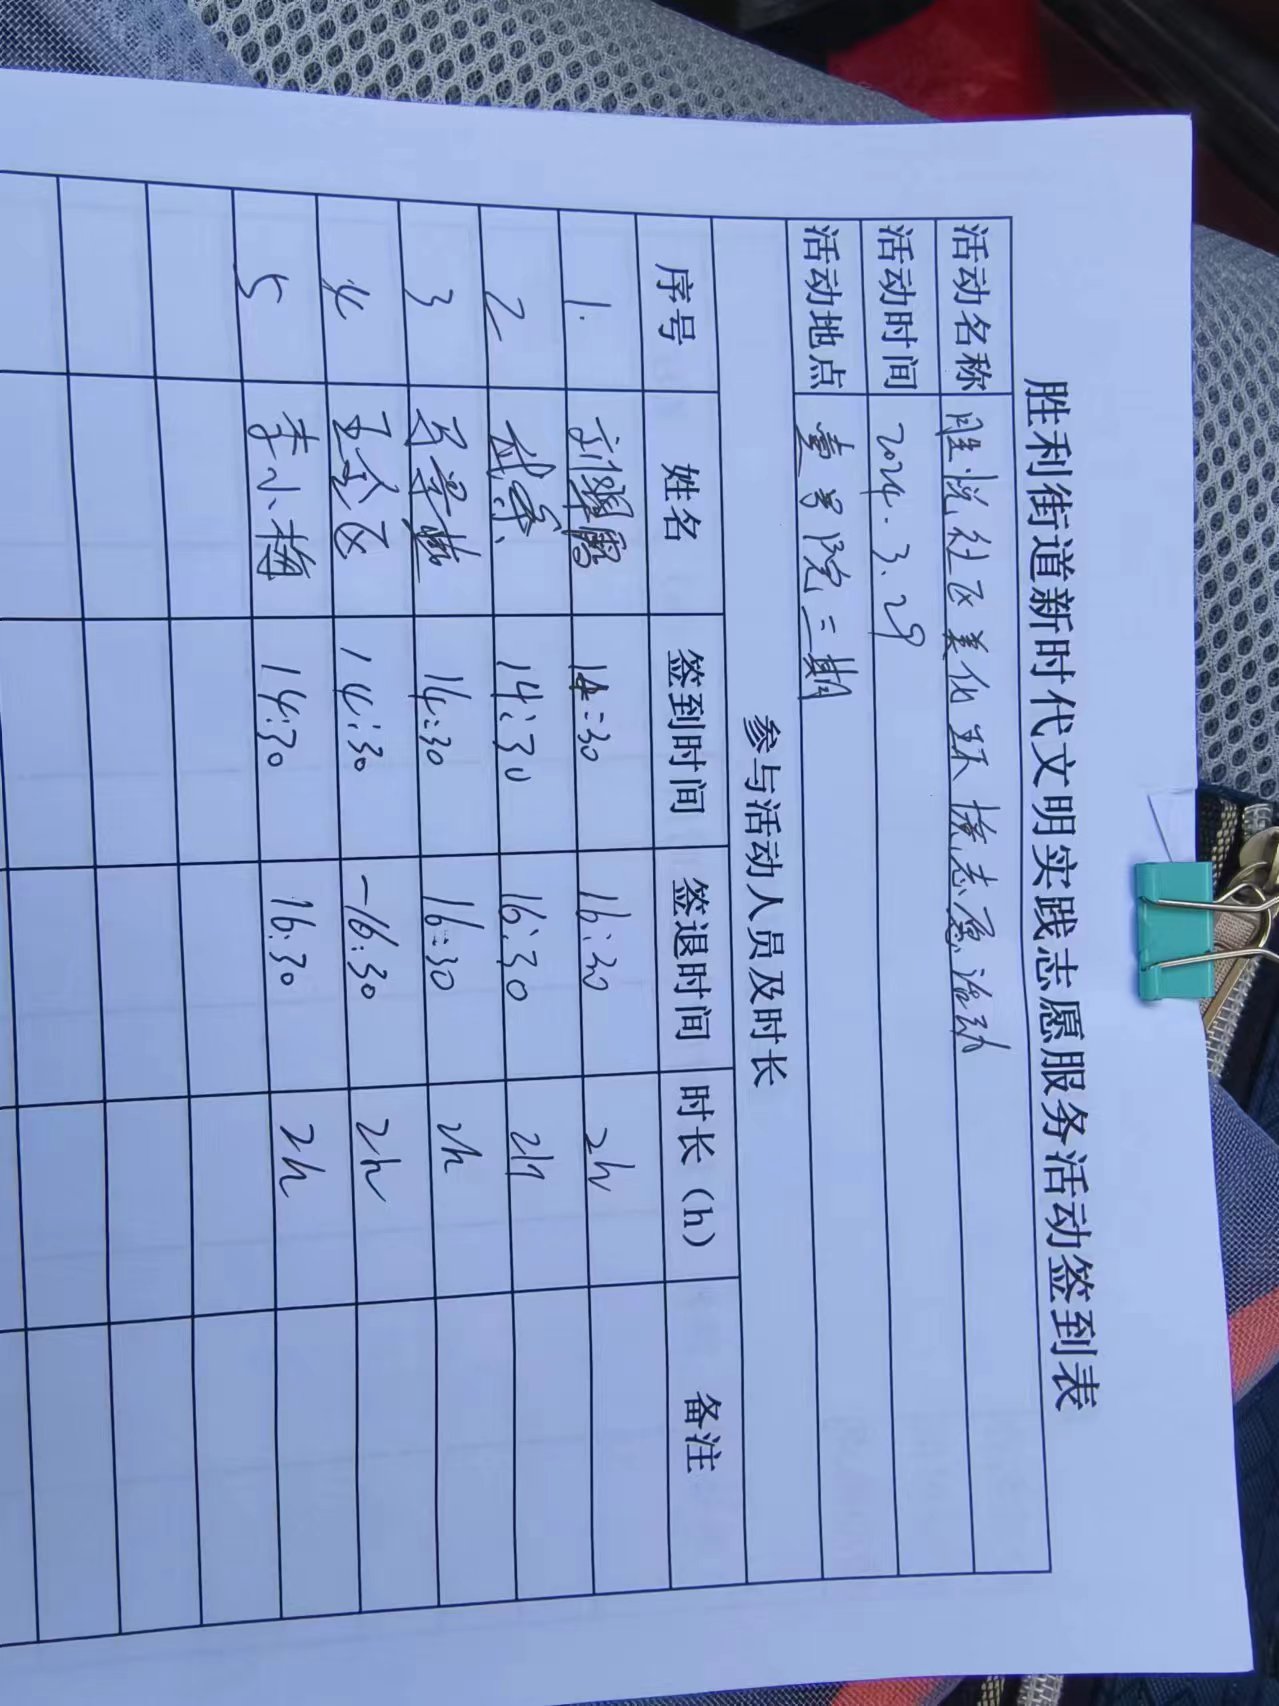 胜利街道新时代文明实践志愿服务活动签到表
活动名称 胜悦社区美化环境志愿活动
活动时间 2024.3.29
活动地点 壹号院二期
参与活动人员及时长
序号 姓名 签到时间 签退时间 时长（h） 备注
1. 14:30 16:30 2h
2 14:30 16:30 2h
3 14:30 16:30 2h
4 14:30 16:30 2h
5 李小梅 14:30 16:30 2h